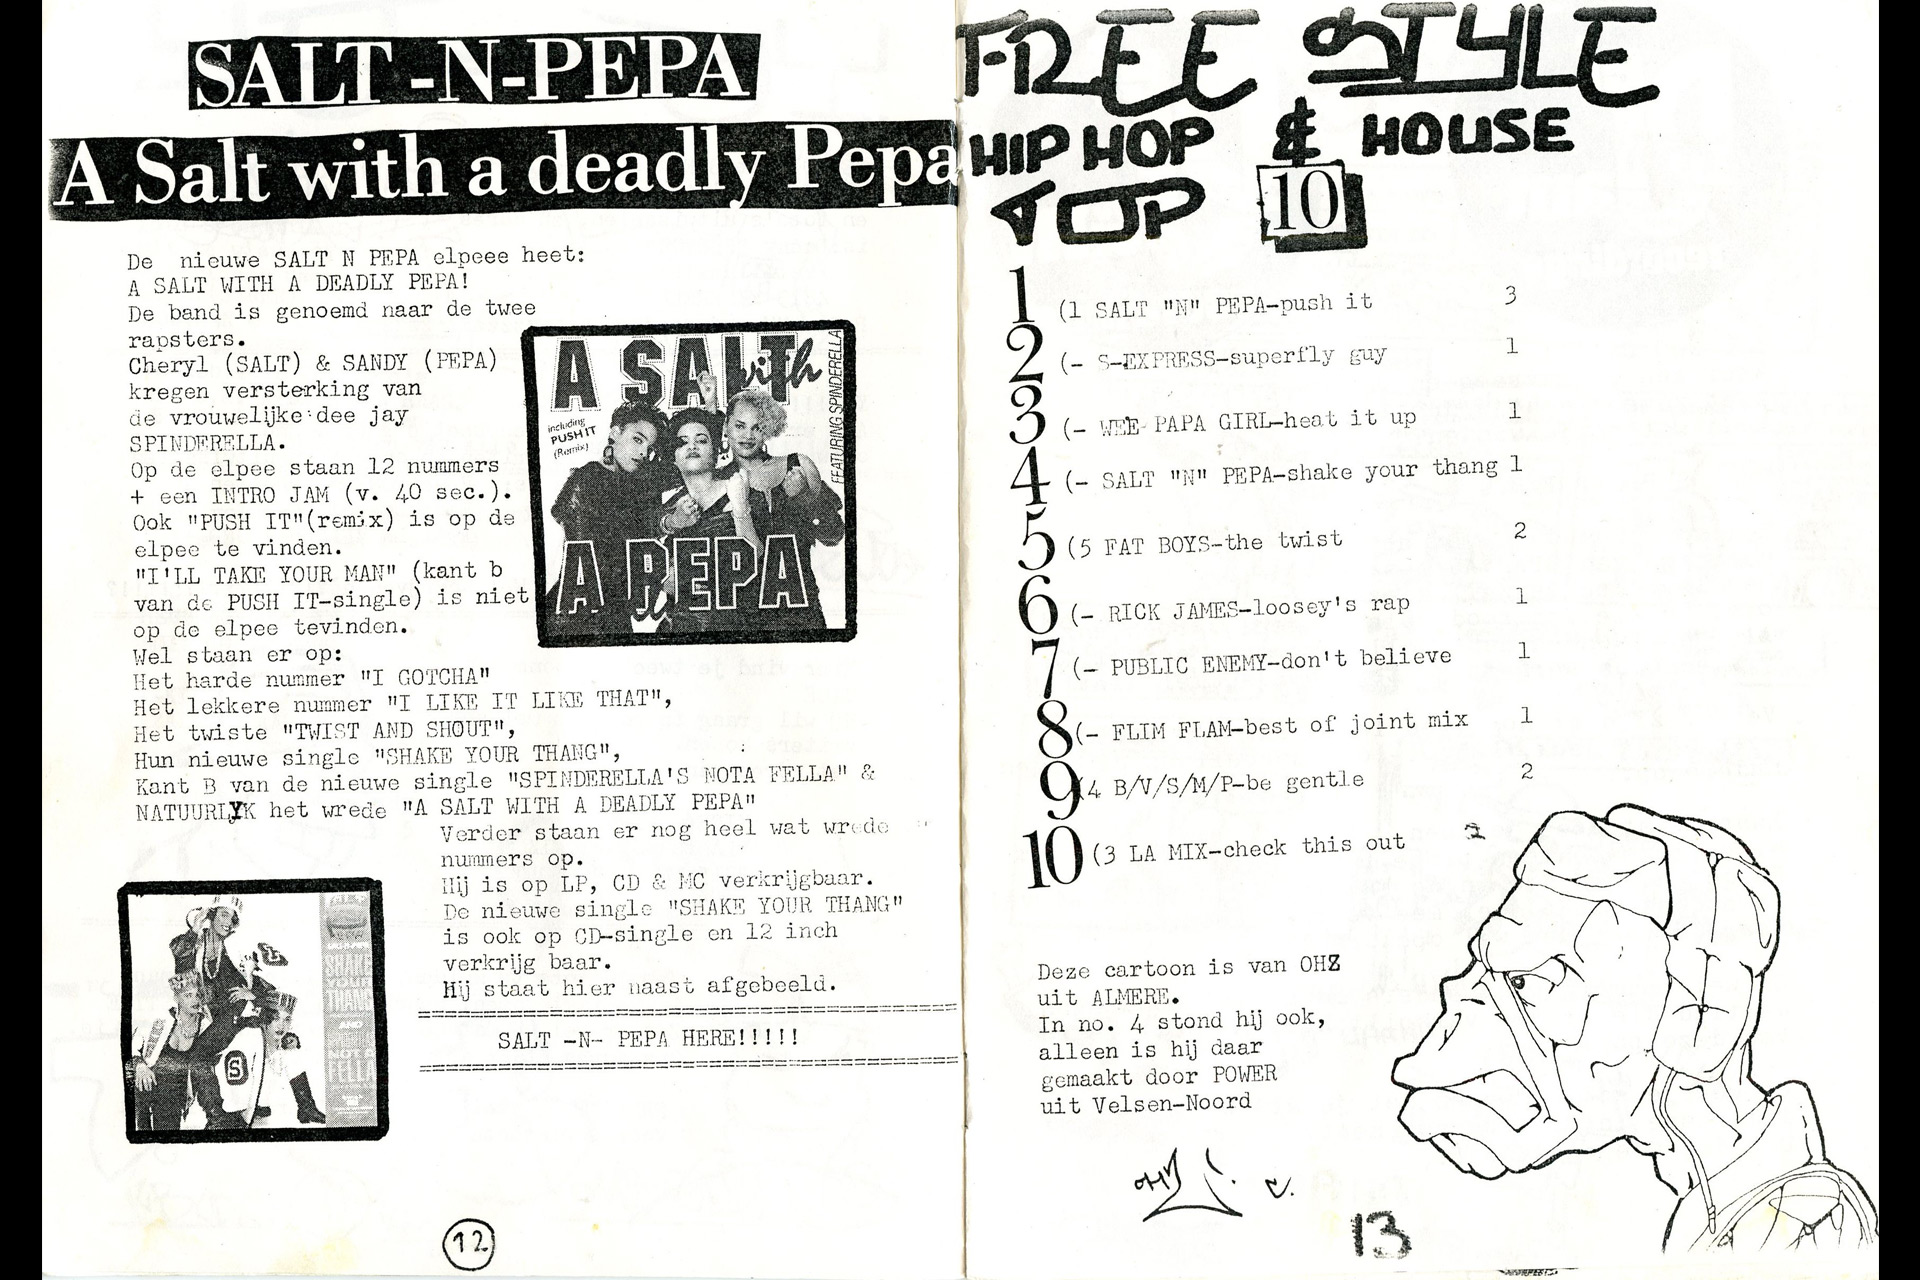 SALT -N-PEPA
A Salt with a deadly Pepa
De nieuwe SALT N PEPA elpeee heet:
A SALT WITH A DEADLY PEPA!
De band is genoemd naar de twee
rapsters.
Cheryl (SALT) & SANDY (PEPA)
kregen versterking van
de vrouwelijke dee jay
SPINDERELLA.
Op de elpee staan 12 nummers
+ een INTRO JAM (v. 40 sec.).
Ook "PUSH IT"(remix) is op de
elpee te vinden.
"I'LL TAKE YOUR MAN" (kant b
van de PUSH IT-single) is niet
op de elpee tevinden.
Wel staan er op:
Het harde nummer "I GOTCHA"
Het lekkere nummer "I LIKE IT LIKE THAT",
Het twiste "TWIST AND SHOUT",
Hun nieuwe single "SHAKE YOUR THANG",
Kant B van de nieuwe single "SPINDERELLA'S NOTA FELLA" &
NATUURLYK het wrede "A SALT WITH A DEADLY PEPA"
Verder staan er nog heel wat wrede
nummers op.
Hij is op LP, CD & MC verkrijgbaar.
De nieuwe single "SHAKE YOUR THANG"
is ook op CD-single en 12 inch
verkrijg baar.
Hij staat hier naast afgebeeld.
SALT -N- PEPA HERE!!!!!
A SALT
with
including
PUSH IT
(Remix)
FEATURING SPINDERELLA
A PEPA
SHAKE
YOUR
THANG
AND
NOTA
FELLA
S
12
FREE STYLE
HIP HOP & HOUSE
TOP 10
1 (1 SALT "N" PEPA-push it 3
2 (- S-EXPRESS-superfly guy 1
3 (- WEE PAPA GIRL-heat it up 1
4 (- SALT "N" PEPA-shake your thang 1
5 (5 FAT BOYS-the twist 2
6 (- RICK JAMES-loosey's rap 1
7 (- PUBLIC ENEMY-don't believe 1
8 (- FLIM FLAM-best of joint mix 1
9 (4 B/V/S/M/P-be gentle 2
10 (3 LA MIX-check this out 2
Deze cartoon is van OHZ
uit ALMERE.
In no. 4 stond hij ook,
alleen is hij daar
gemaakt door POWER
uit Velsen-Noord
13